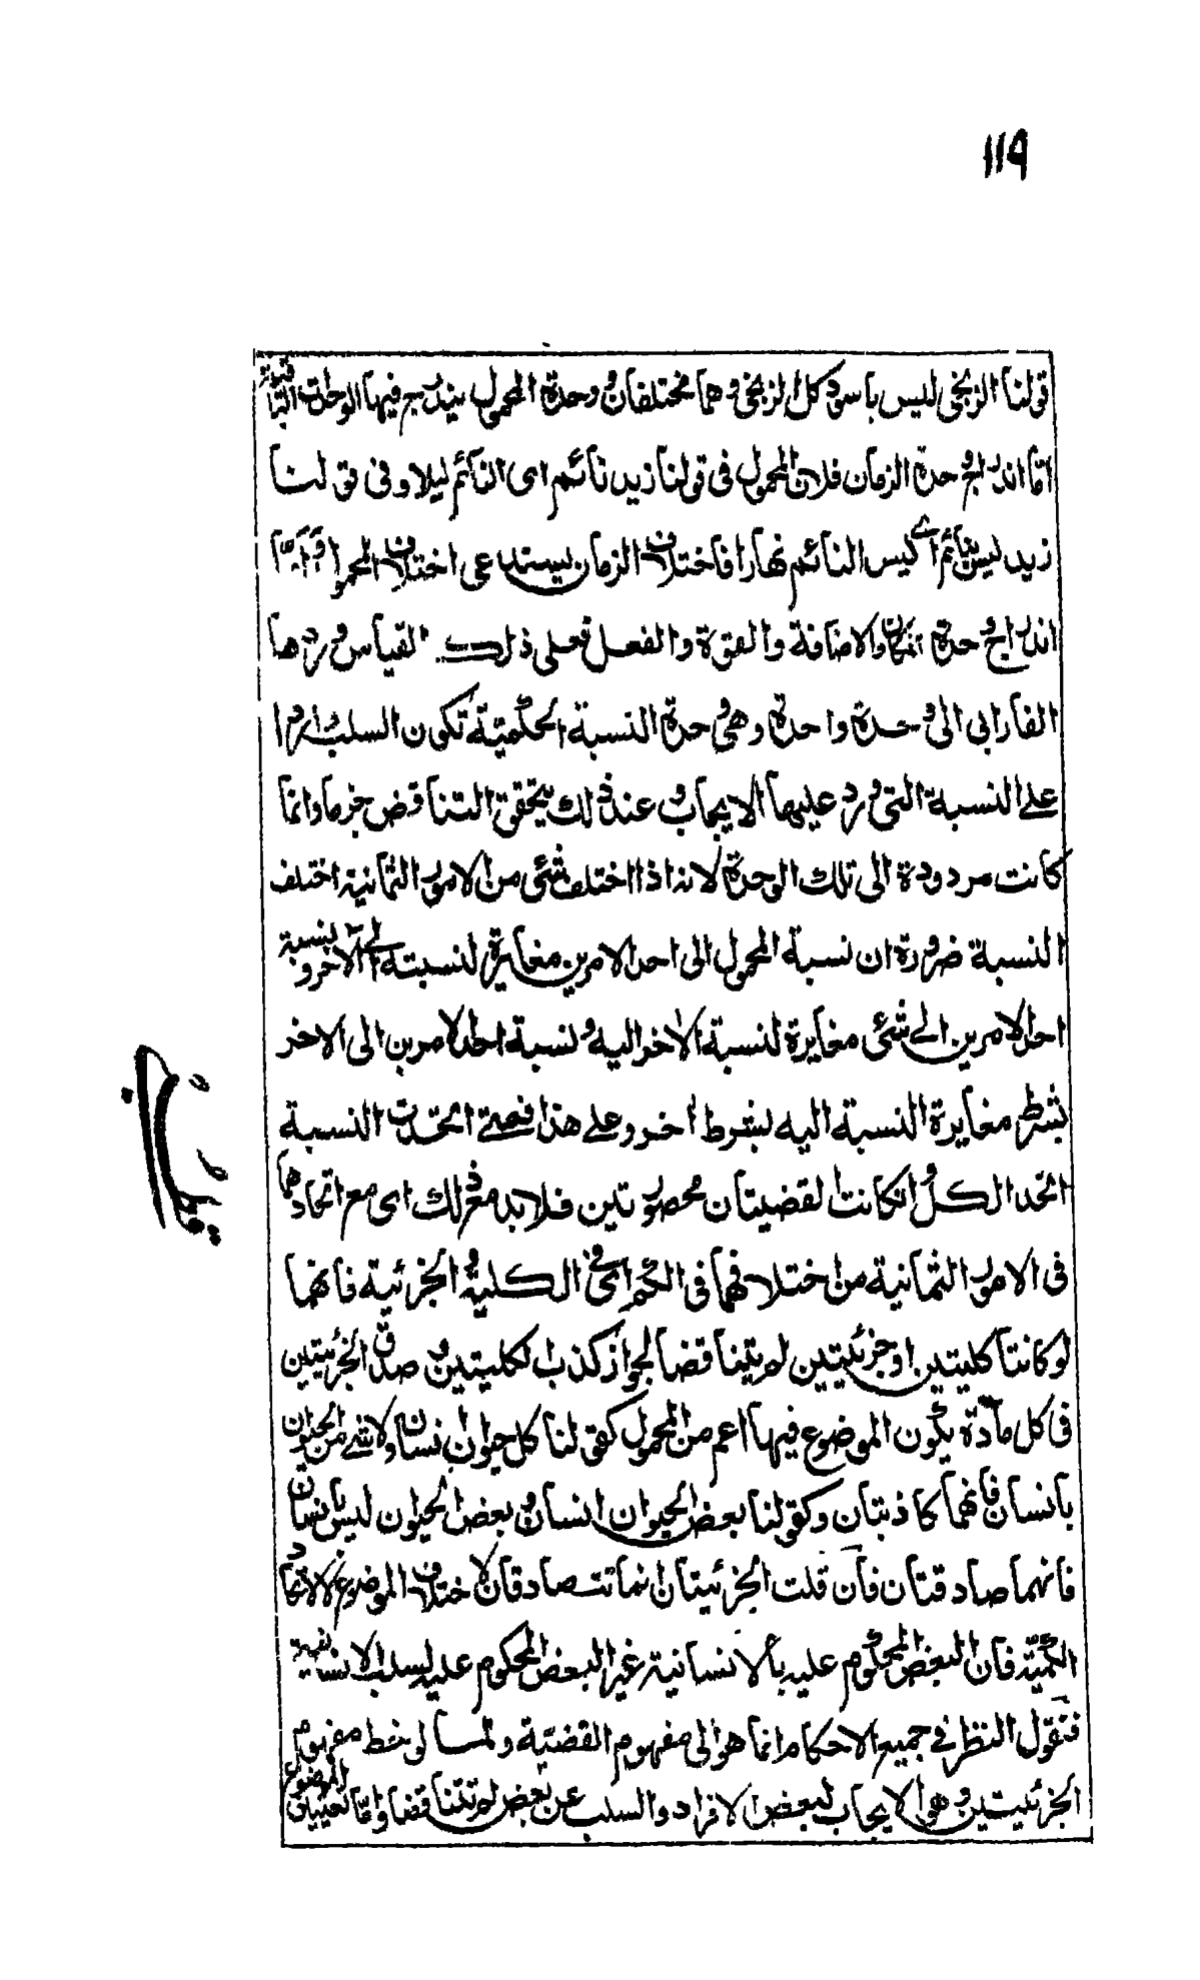 ١١٩
قولنا الزنجى ليس باسود كل الزنجى وهما مختلفان ووحدة المحمول يندرج فيها الوحدات الباقية
اما اندراج وحدة الزمان فلان المحمول فى قولنا زيد نائم اى النائم ليلا وفى قولنا
زيد ليس بنائم اے ليس النائم نهارا فاختلاف الزمان يستدعى اختلاف المحمول واما
اندراج وحدة المكان والاضافة والقوة والفعل فعلى ذلك القياس وردها
الفارابى الى وحدة واحدة وهى وحدة النسبة الحكمية تكون السلب واردا
على النسبة التى ورد عليها الايجاب وعند ذلك يتحقق التناقض جزما وانما
كانت مردودة الى تلك الوحدة لانه اذا اختلف شئى من الامور الثمانية اختلف
النسبة ضرورة ان نسبة المحمول الى احد الامرين مغايرة لنسبته الى الآخر ونسبة
احد الامرين الے شئى مغايرة لنسبة الآخر اليه ونسبة احد الامرين الى الاخر
بشرط مغايرة النسبة اليه بشرط اخر وعلى هذا فمتے اتحدت النسبة
اتحد الكل وان كانت القضيتان محصورتين فلا بد مع ذلك اى مع اتحادهما
فى الامور الثمانية من اختلافهما فى الكم اى فى الكلية والجزئية فانهما
لو كانتا كليتين او جزئيتين لم يتناقضا لجواز كذب الكليتين وصدق الجزئيتين
فى كل مادة يكون الموضوع فيها اعم من المحمول كقولنا كل حيوان انسان ولا شے من الحيوان
بانسان فانهما كاذبتان وكقولنا بعض الحيوان انسان وبعض الحيوان ليس بانسان
فانهما صادقتان فان قلت الجزئيتان انما تتصادقان لاختلاف الموضوع لا لاتحاد
الكمية فان البعض المحكوم عليه بالانسانية غير البعض المحكوم عليه بسلب الانسانية
فنقول النظر فے جميع الاحكام انما هو الى مفهوم القضية ولما لوحظ مفهوم
الجزئيتين وهو الايجاب لبعض الافراد والسلب عن بعض لم تتناقضا واما تعيين الموضوع